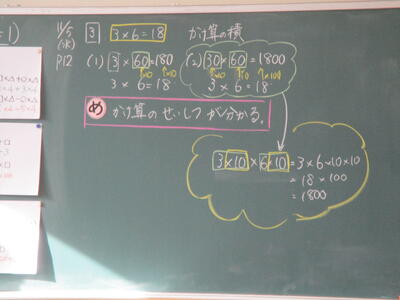 11/5
(水)
P12
3 3×6=18 かけ算の積
(1) 3×60=180
↑×10 ↑×10
3×6=18
(2) 30×60=1800
↑×10 ↑×10 ↑×100
3×6=18
め かけ算のせいしつが分かる.
3×10×6×10=3×6×10×10
=18×100
=1800